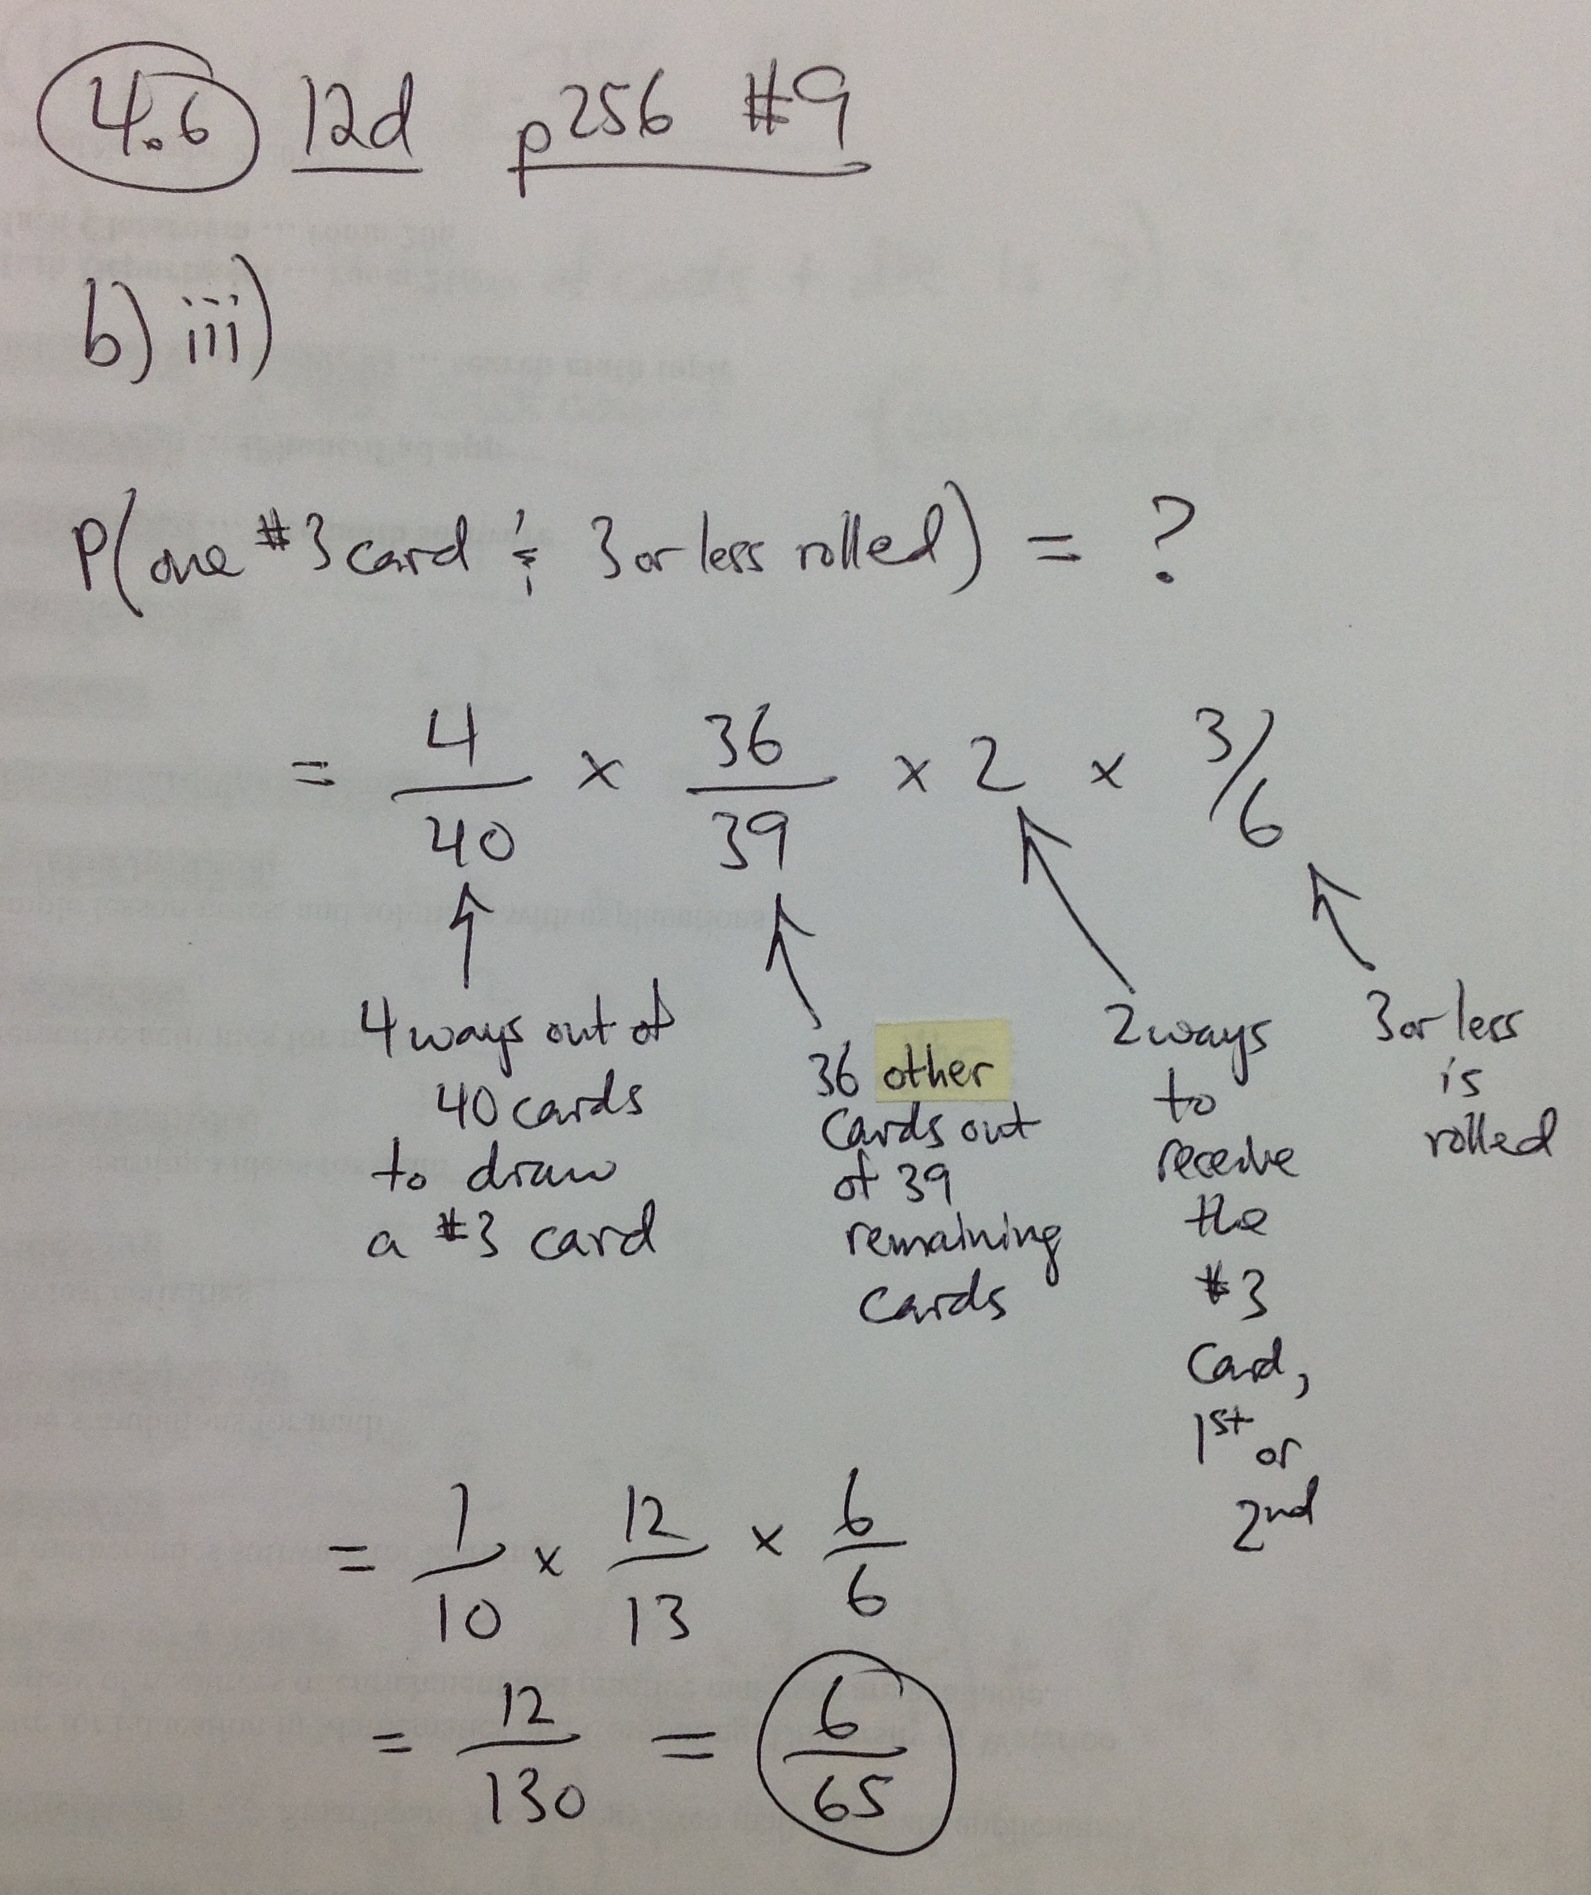 4.6 12d p256 #9
b) iii)
P(one #3 card & 3 or less rolled) = ?
= 4/40 × 36/39 × 2 × 3/6
4 ways out of
40 cards
to draw
a #3 card
36 other
cards out
of 39
remaining
cards
2 ways
to
receive
the
#3
card,
1st or
2nd
3 or less
is
rolled
= 1/10 × 12/13 × 6/6
= 12/130 = 6/65